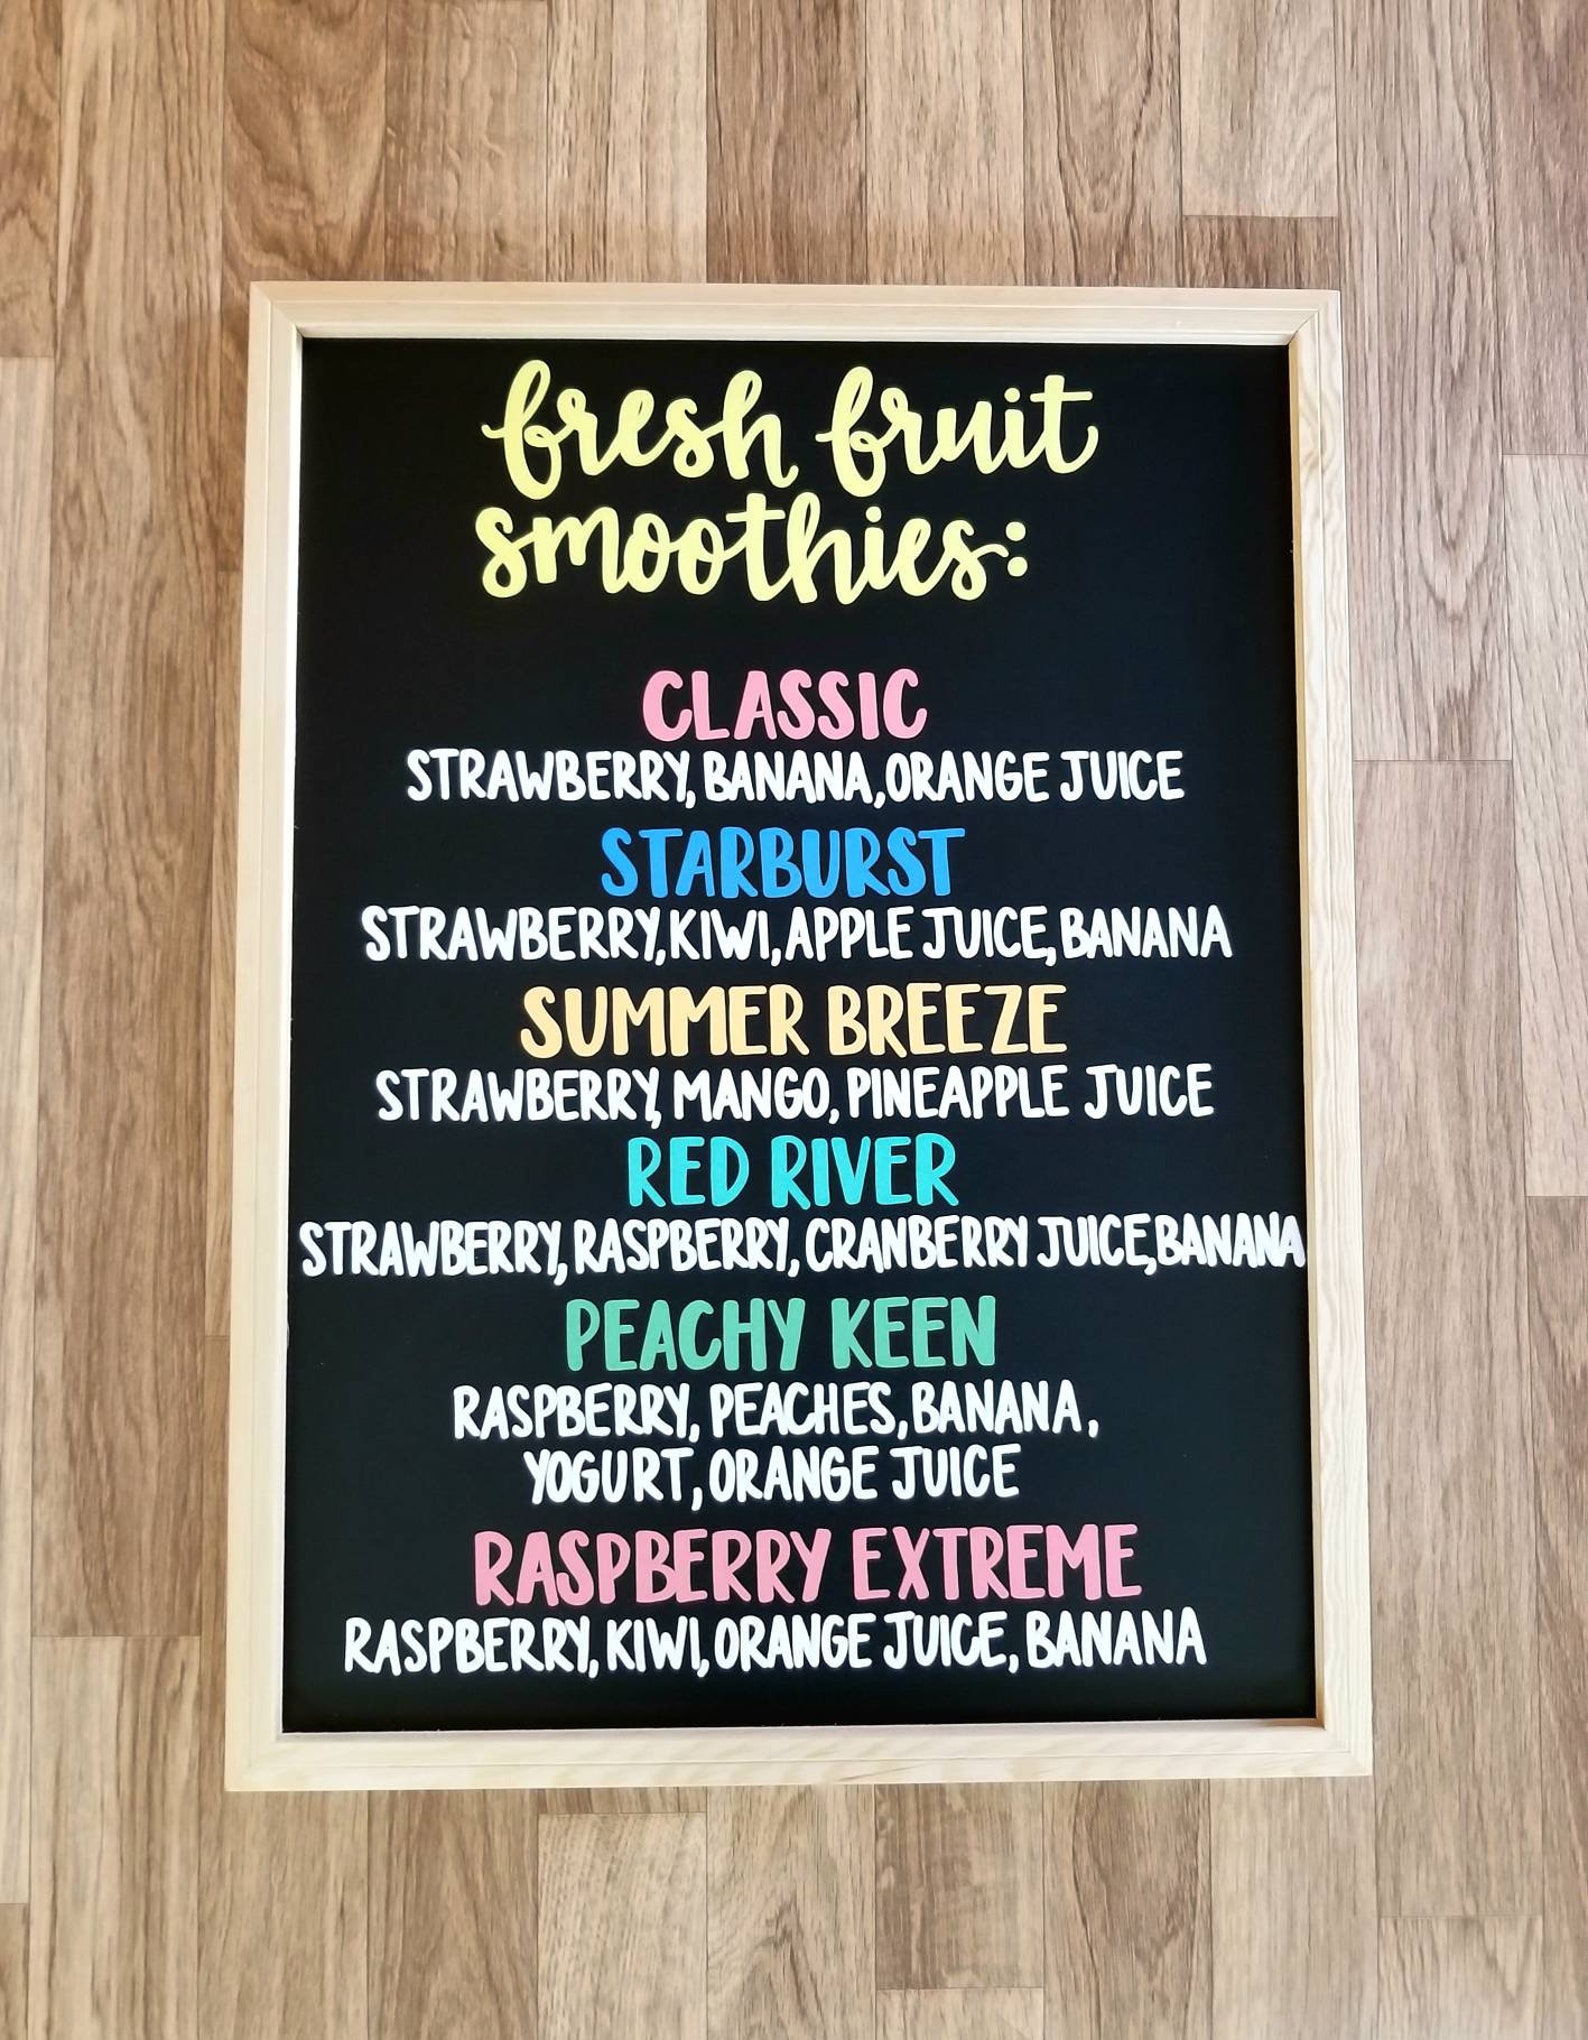 fresh fruit
smoothies:
CLASSIC
STRAWBERRY, BANANA, ORANGE JUICE
STARBURST
STRAWBERRY, KIWI, APPLE JUICE, BANANA
SUMMER BREEZE
STRAWBERRY, MANGO, PINEAPPLE JUICE
RED RIVER
STRAWBERRY, RASPBERRY, CRANBERRY JUICE, BANANA
PEACHY KEEN
RASPBERRY, PEACHES, BANANA,
YOGURT, ORANGE JUICE
RASPBERRY EXTREME
RASPBERRY, KIWI, ORANGE JUICE, BANANA